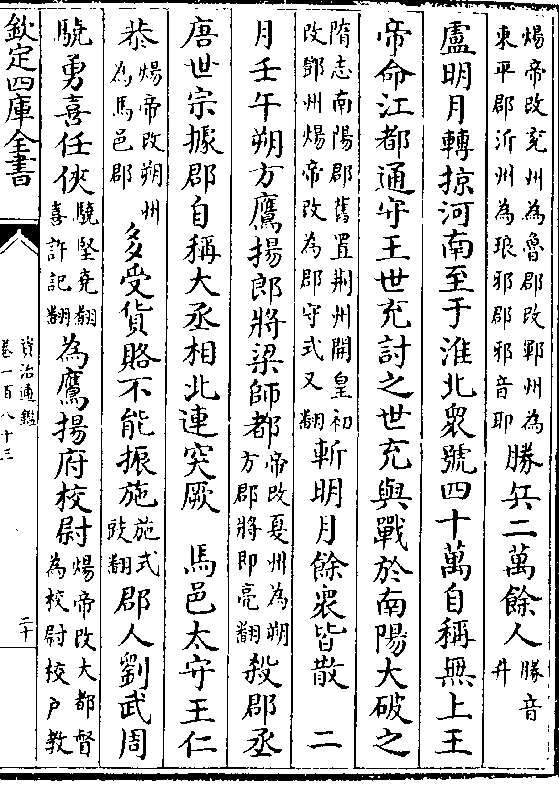 煬帝改兗州為魯郡改鄆州為
東平郡沂州為琅邪郡邪音耶
勝兵二萬餘人
勝音
升
盧明月轉掠河南至于淮北衆號四十萬自稱無上王
帝命江都通守王世充討之世充與戰於南陽大破之
隋志南陽郡舊置荆州開皇初
改鄧州煬帝改為郡守式又翻
斬明月餘衆皆散　二
月壬午朔方鷹揚郎將梁師都
帝改夏州為朔
方郡將即亮翻
殺郡丞
唐世宗據郡自稱大丞相北連突厥　馬邑太守王仁
恭
煬帝改朔州
為馬邑郡
多受貨賂不能振施
施式
豉翻
郡人劉武周
驍勇喜任俠
驍堅堯翻
喜許記翻
為鷹揚府校尉
煬帝改大都督
為校尉校戶教
欽定四庫全書
資治通鑑
卷一百八十三
二十